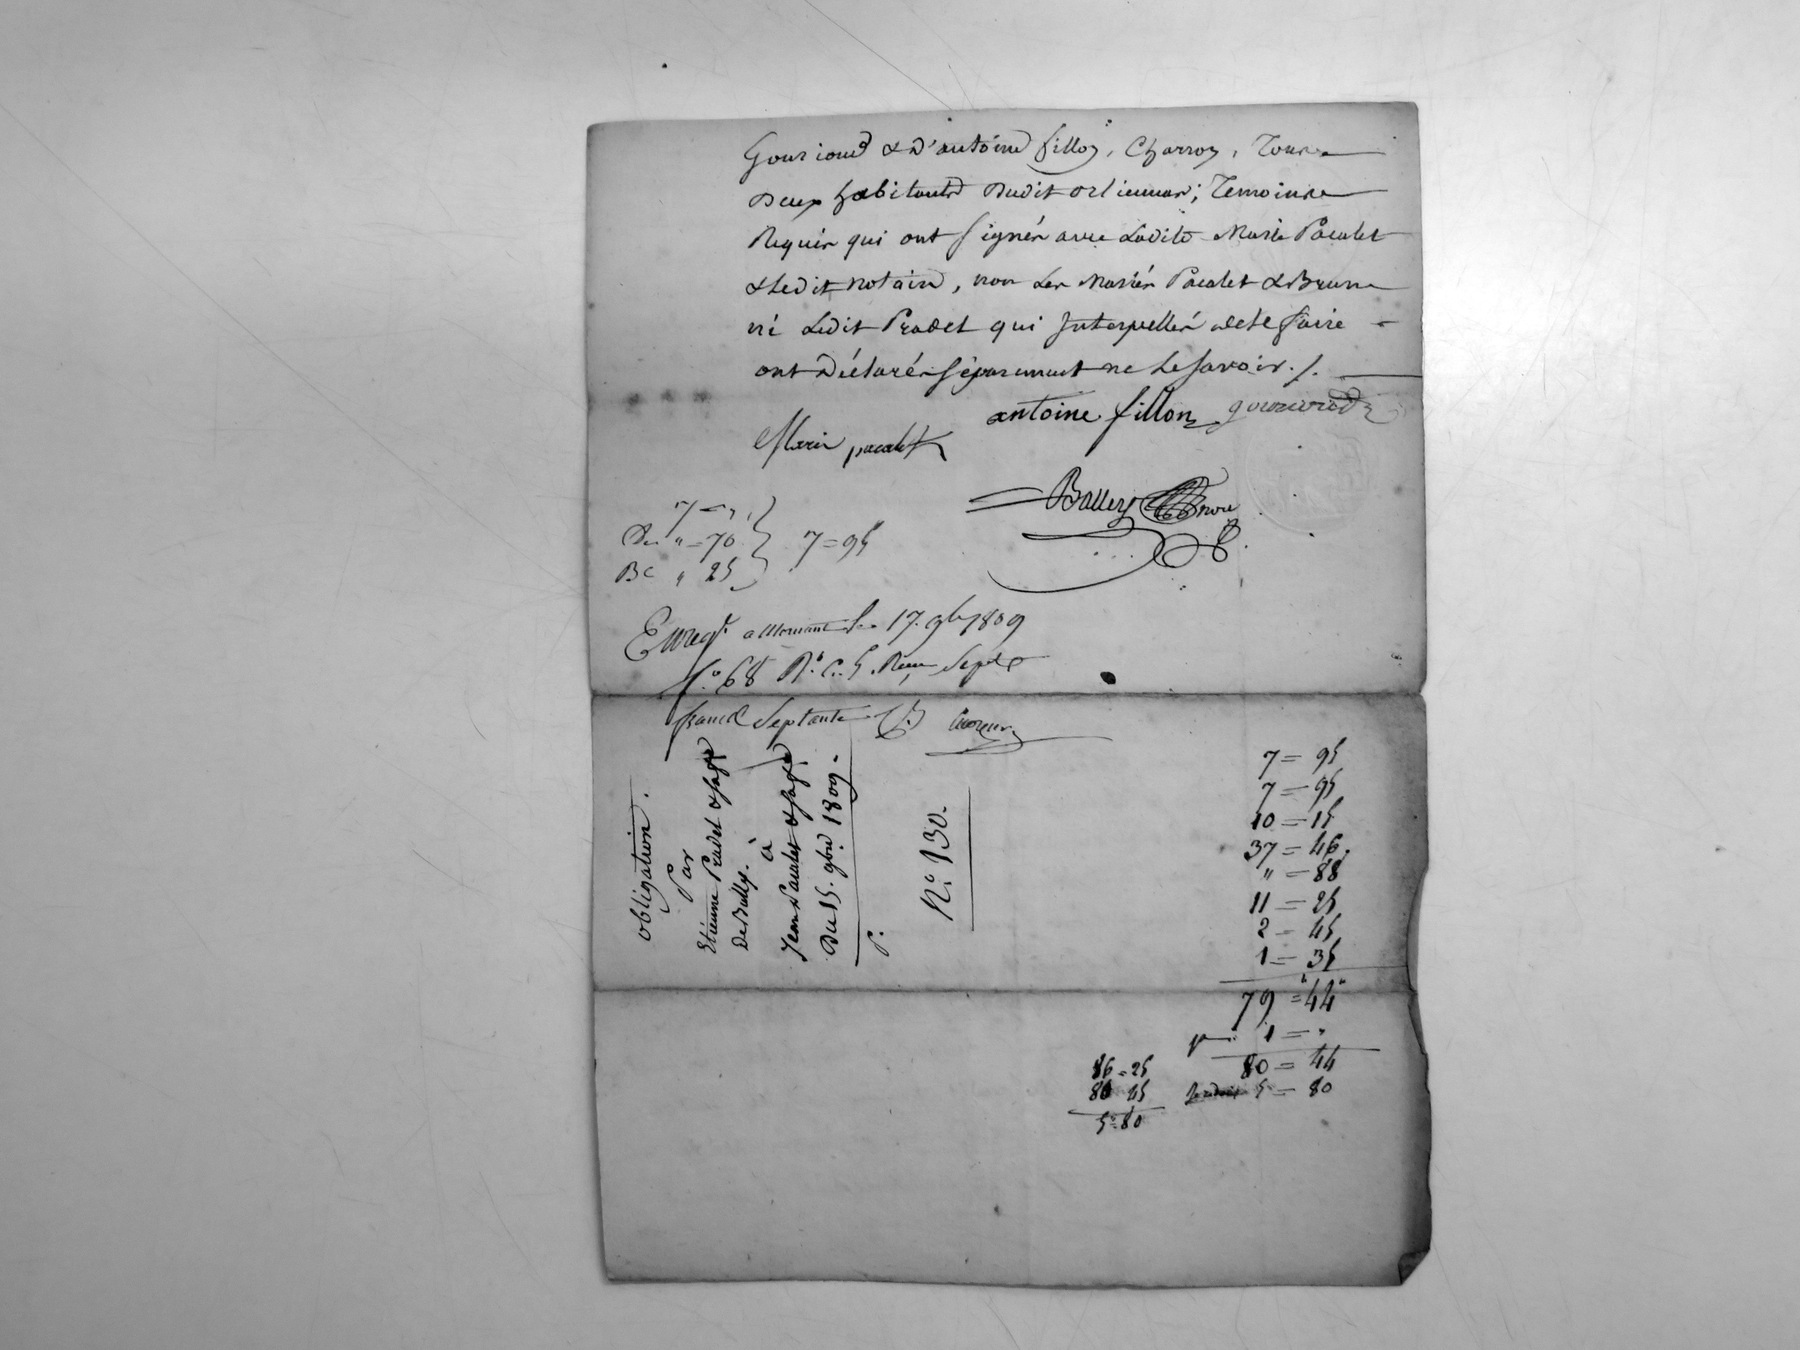 & d'antoine fillon, Charron, Tous
deux habitants dudit orlienas; Temoins
Requis qui ont signés avec Ladite Marie Pacalet
& Ledit notaire, non Les Mariés Pacalet & Brun
ni Ledit Pradet qui Interpellés de le faire
ont Déclarés séparement ne Le savoir ./.
antoine fillon
Marie pacalet
Ballery
7 = "
" = 70
" 25
7 = 95
Enregt. a Mornant le 17. 9bre 1809
fo. 68 Ro. C. 5. Recu Sept
francs Septante
obligation.
Par
Etienne Pradet & sa fe
De Bully.
à
Jean Pacalet & sa fe
Du 15. 9bre 1809.
No. 130.
7 = 95
7 = 95
10 = 15
37 = 46
" = 88
11 = 25
2 = 45
1 = 35
79 = 44
1 = "
80 = 44
5 = 80
86 = 25
80 45
5 = 80